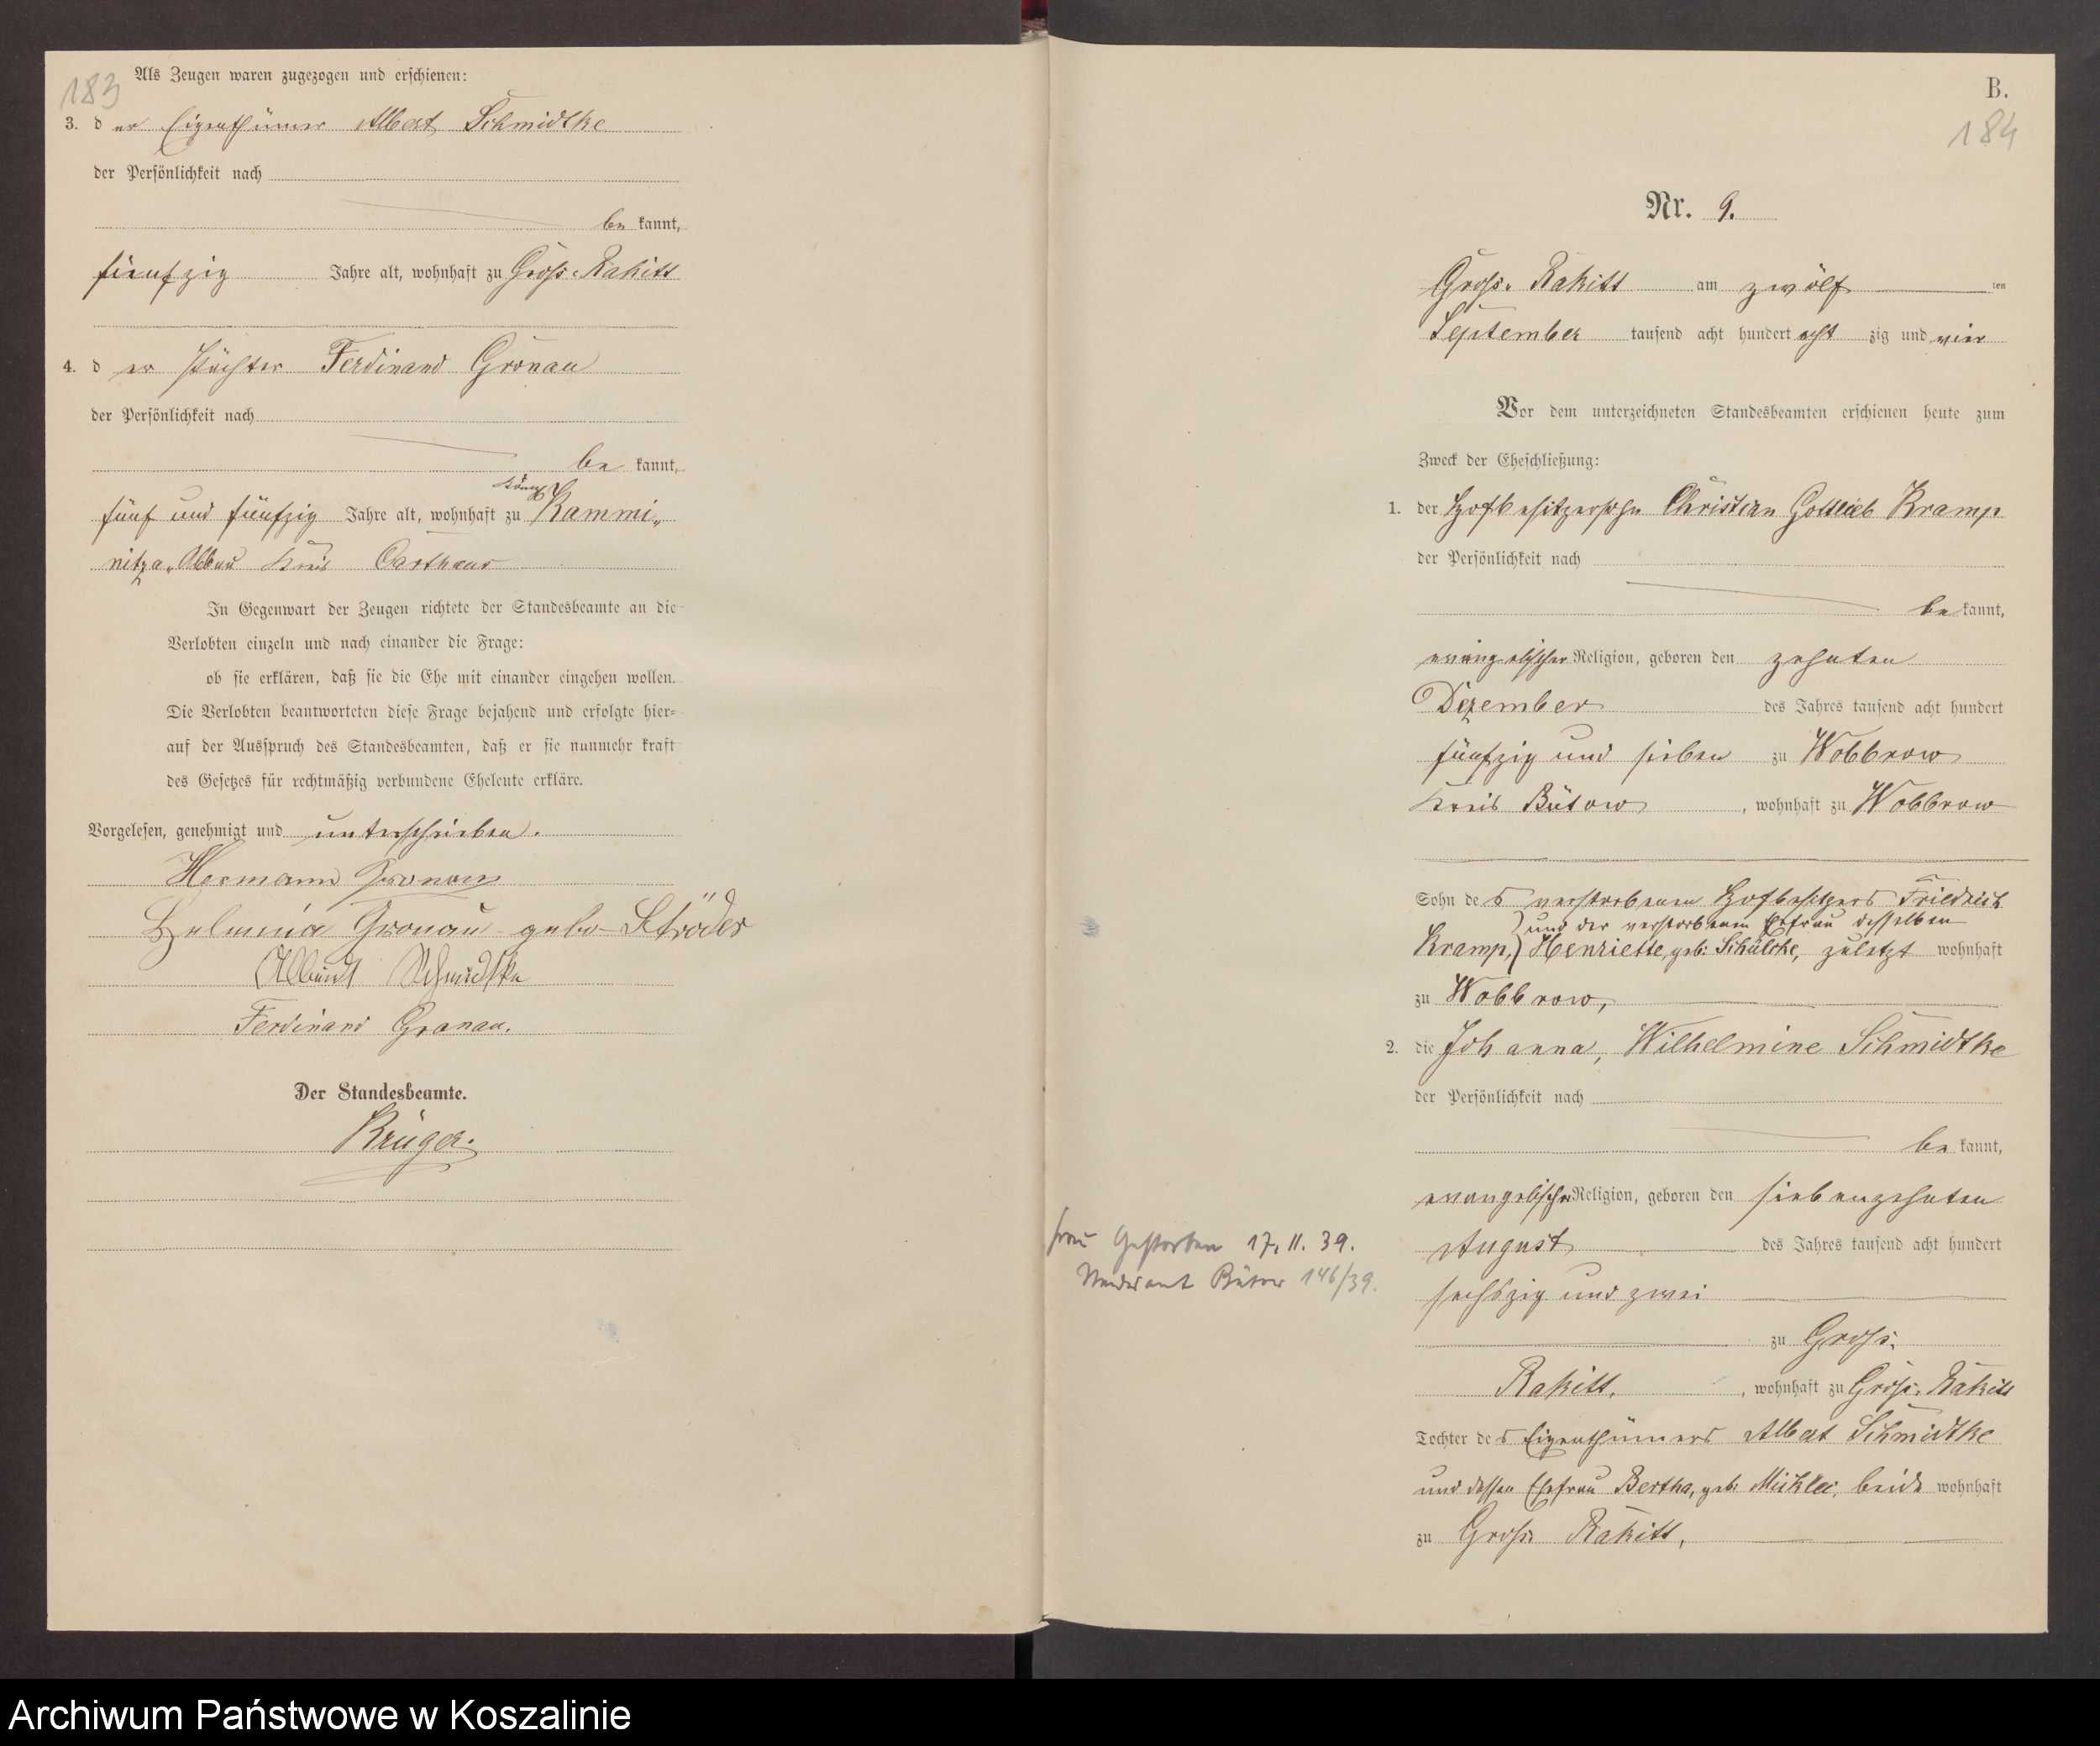 183
Als Zeugen waren zugezogen und erschienen:
3. der Eigenthümer Albert Schmidtke
der Persönlichkeit nach
bekannt,
fünfzig Jahre alt, wohnhaft zu Groß-Rakitt
4. der Pächter Ferdinand Gronau
der Persönlichkeit nach
bekannt,
Königl
fünf und fünfzig Jahre alt, wohnhaft zu Kammi-
nitza-Abbau Kreis Carthaus
In Gegenwart der Zeugen richtete der Standesbeamte an die
Verlobten einzeln und nach einander die Frage:
ob sie erklären, daß sie die Ehe mit einander eingehen wollen.
Die Verlobten beantworteten diese Frage bejahend und erfolgte hier-
auf der Ausspruch des Standesbeamten, daß er sie nunmehr kraft
des Gesetzes für rechtmäßig verbundene Eheleute erkläre.
Vorgelesen, genehmigt und unterschrieben.
Hermann Gronau
Helmina Gronau geb. Ströder
Albert Schmidtke
Ferdinand Gronau.
Der Standesbeamte.
Krüger.
B.
184
Nr. 9.
Groß-Rakitt am zwölf ten
September tausend acht hundert achtzig und vier
Vor dem unterzeichneten Standesbeamten erschienen heute zum
Zweck der Eheschließung:
1. der Hofbesitzersohn Christian Gottlieb Kramp
der Persönlichkeit nach
bekannt,
evangelischer Religion, geboren den zehnten
Dezember des Jahres tausend acht hundert
fünfzig und sieben zu Wobbrow
Kreis Bütow, wohnhaft zu Wobbrow
Sohn des verstorbenen Hofbesitzers Friedrich
und der verstorbenen Ehefrau desselben
Kramp, Henriette, geb. Schülcke, zuletzt wohnhaft
zu Wobbrow,
2. die Johanna, Wilhelmine Schmidtke
der Persönlichkeit nach
bekannt,
evangelischer Religion, geboren den siebenzehnten
August des Jahres tausend acht hundert
sechszig und zwei
zu Groß-
Rakitt, wohnhaft zu Groß-Rakitt
Tochter des Eigenthümers Albert Schmidtke
und dessen Ehefrau Bertha, geb. beide wohnhaft
zu Groß Rakitt,
Frau Gestorben 17. 11. 39.
Standesamt Bütow 146/39.
Archiwum Państwowe w Koszalinie